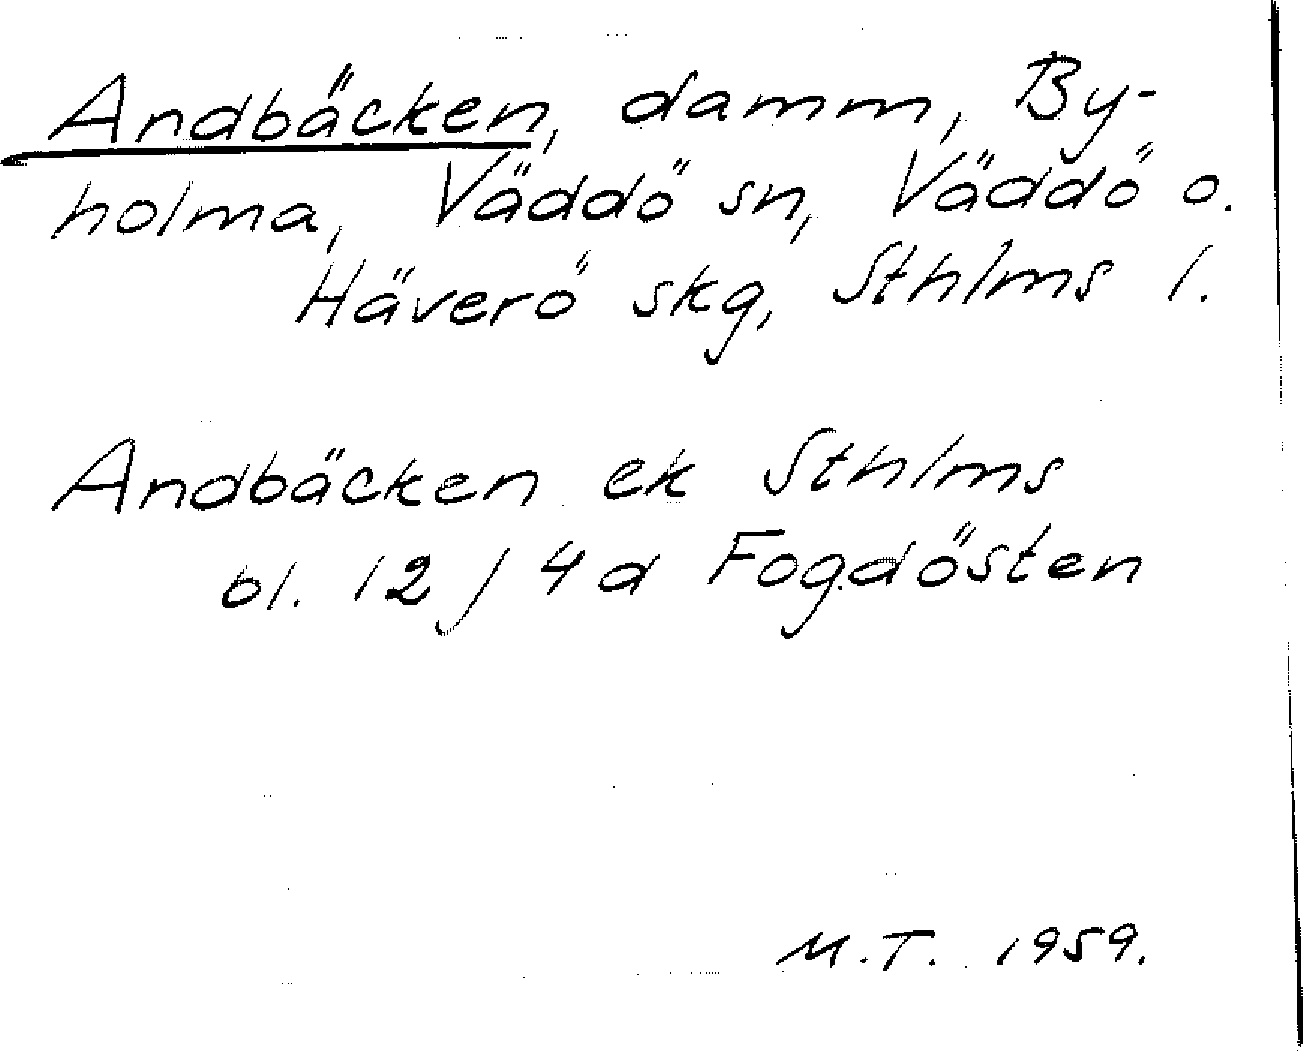 Andbäcken, damm, By-
holma, Väddö sn, Väddö o.
Häverö skg, Sthlms l.
Andbäcken ek Sthlms
bl. 12 j 4 d Fogdösten
M.T. 1959.